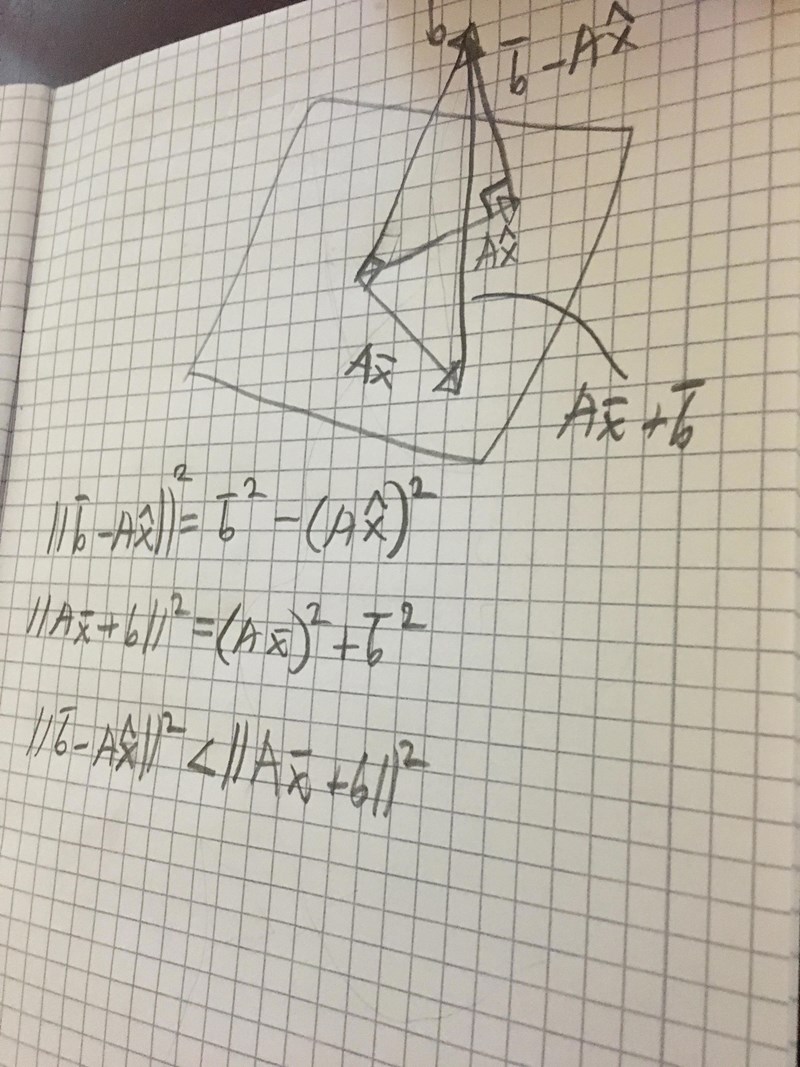 b
b̄ - Ax̂
Ax̂
Ax̄
Ax̄ + b̄
||b̄ - Ax̂||² = b̄² - (Ax̂)²
||Ax̄ + b||² = (Ax̄)² + b̄²
||b̄ - Ax̂||² < ||Ax̄ + b||²